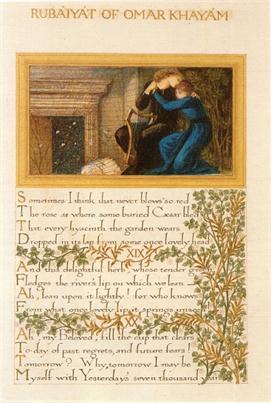 RUBÁIYÁT OF OMAR KHAYÁM
Sometimes I think that never blows so red
The rose as where some buried Cæsar bled
That every hyacinth the garden wears
Dropped in its lap from some once lovely head
XIX
And this delightful herb, whose tender green
Fledges the river's lip on which we lean
Ah, lean upon it lightly! for who knows
From what once lovely lip it springs unseen
Ah, my Beloved, fill the cup that clears
To-day of past regrets, and future fears!
Tomorrow? Why, tomorrow I may be
Myself with Yesterday's seven thousand years